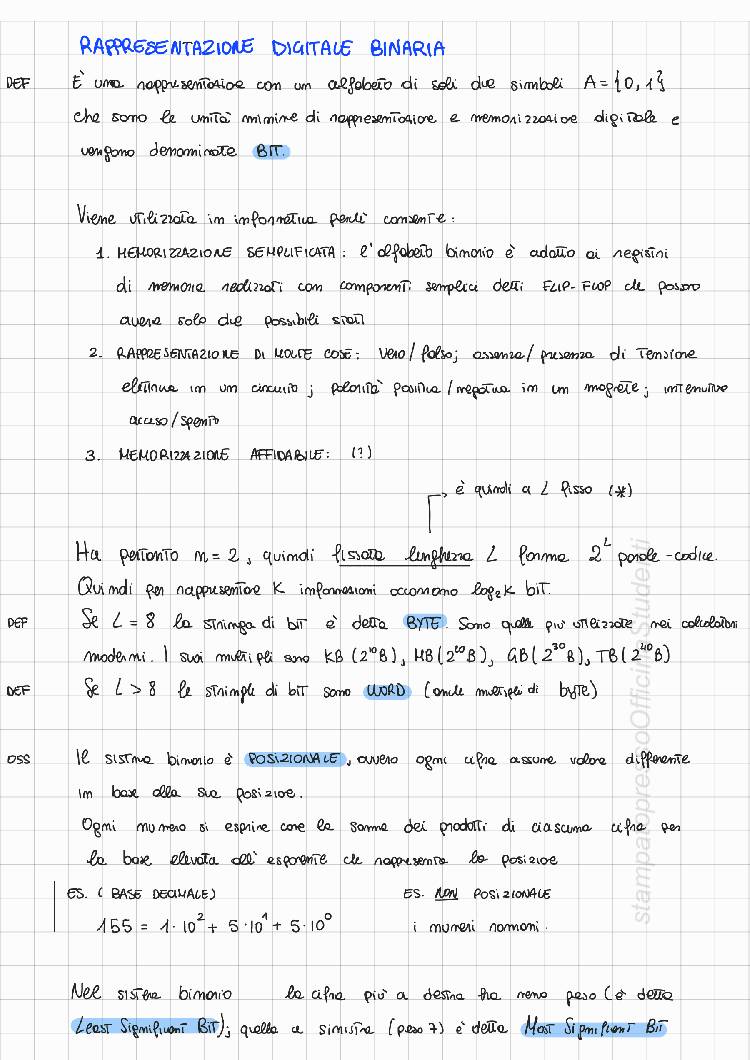 RAPPRESENTAZIONE DIGITALE BINARIA
DEF È una rappresentazione con un alfabeto di soli due simboli A = {0, 1}
che sono le unità minime di rappresentazione e memorizzazione digitale e
vengono denominate BIT.
Viene utilizzata in informatica perché consente:
1. MEMORIZZAZIONE SEMPLIFICATA: l'alfabeto binario è adatto ai registri
di memoria realizzati con componenti semplici detti FLIP-FLOP che possono
avere solo due possibili stati
2. RAPPRESENTAZIONE DI MOLTE COSE: vero/falso; assenza/presenza di tensione
elettrica in un circuito; polarità positiva/negativa in un magnete; interruttore
acceso/spento
3. MEMORIZZAZIONE AFFIDABILE: (?)
è quindi a L fisso (*)
Ha pertanto n = 2, quindi fissata lunghezza L forma 2^L parole-codice.
Quindi per rappresentare K informazioni occorrono log₂K bit.
DEF Se L = 8 la stringa di bit è detta BYTE. Sono quelle più utilizzate nei calcolatori
moderni. I suoi multipli sono KB (2¹⁰B), MB (2²⁰B), GB (2³⁰B), TB (2⁴⁰B)
DEF Se L > 8 le stringhe di bit sono WORD (anche multipli di byte)
OSS Il sistema binario è POSIZIONALE, ovvero ogni cifra assume valore differente
in base alla sua posizione.
Ogni numero si esprime come la somma dei prodotti di ciascuna cifra per
la base elevata all'esponente che rappresenta la posizione
ES. (BASE DECIMALE) ES. NON POSIZIONALE
155 = 1·10² + 5·10¹ + 5·10⁰ i numeri romani.
Nel sistema binario la cifra più a destra ha meno peso (è detta
Least Significant Bit); quella a sinistra (peso 7) è detta Most Significant Bit
stampatopressoOfficinaStudenti